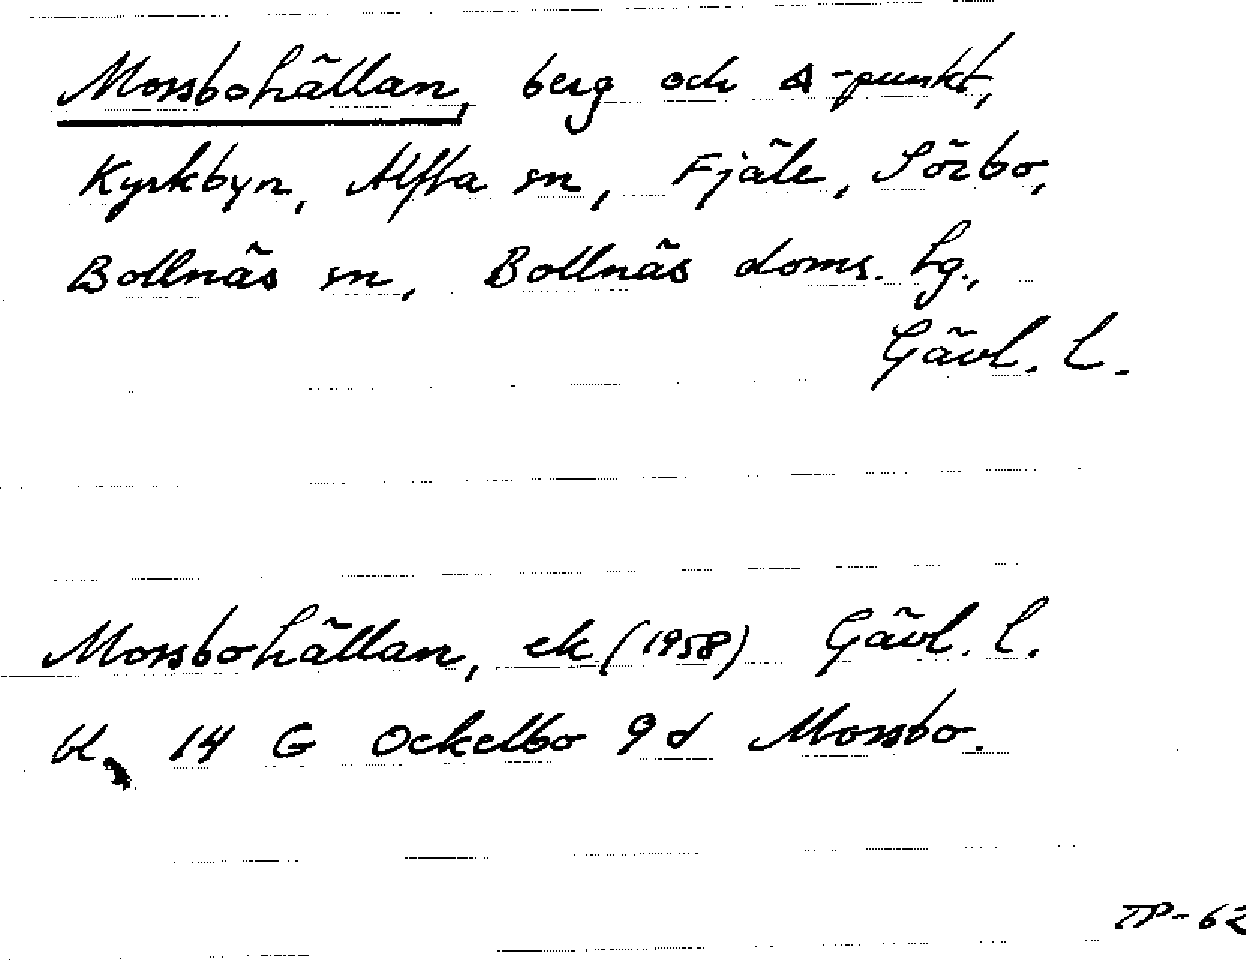 Mossbohällan, berg och Δ-punkt,
Kyrkbyn, Alfta sn, Fjäle, Sörbo,
Bollnäs sn, Bollnäs doms. hg.,
Gävl. l.
Mossbohällan, ek (1958) Gävl. l.
K, 14 G Ockelbo 9 d Mossbo.
TP-62